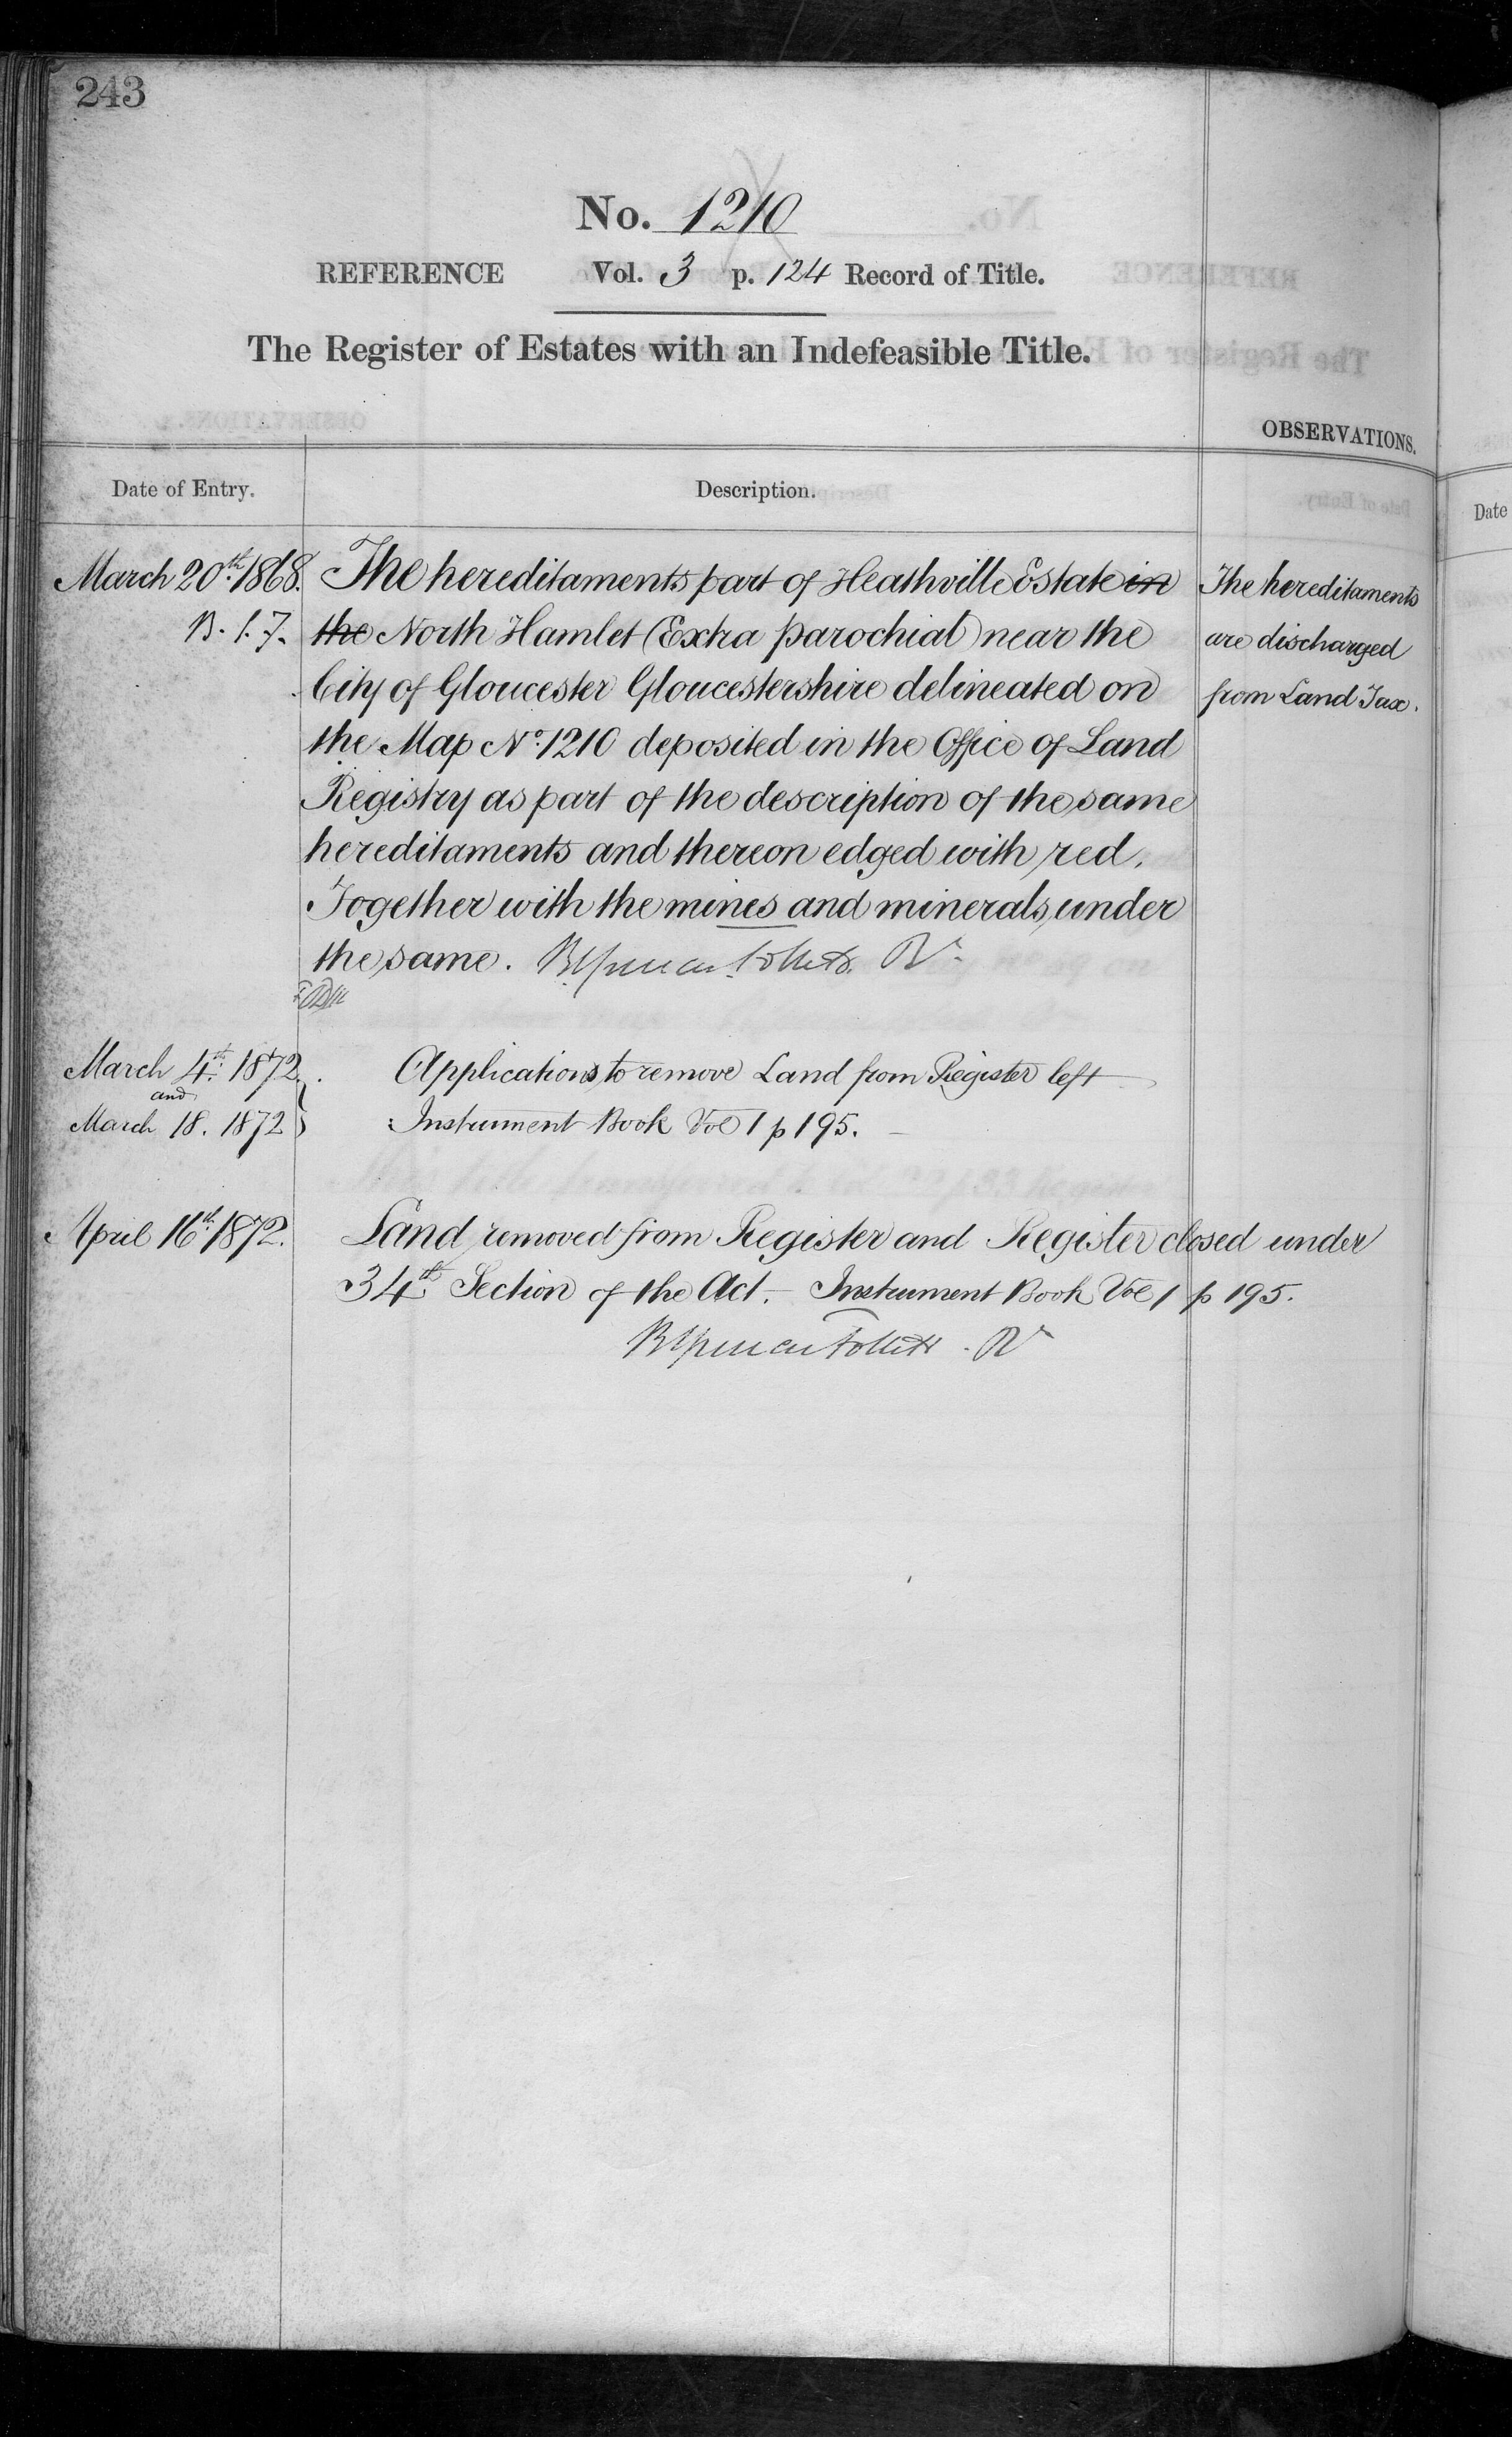 243
No. 1210
REFERENCE Vol. 3 p. 124 Record of Title.
The Register of Estates with an Indefeasible Title.
OBSERVATIONS.
Date of Entry. Description.
Date
March 20th. 1868. The hereditaments part of Heathville Estate in
B. 1. 7. the North Hamlet (Extra parochial) near the
City of Gloucester Gloucestershire delineated on
the Map No. 1210 deposited in the Office of Land
Registry as part of the description of the same
hereditaments and thereon edged with red.
Together with the mines and minerals under
the same. Brent Spencer Follett. Rr.
The hereditaments
are discharged
from Land Tax.
March 4th. 1872. Applications to remove Land from Register left
and
March 18. 1872 Instrument Book Vol 1 p 195.
April 16th. 1872. Land removed from Register and Register closed under
34th. Section of the Act. – Instrument Book Vol 1 p 195.
Brent Spencer Follett. Rr